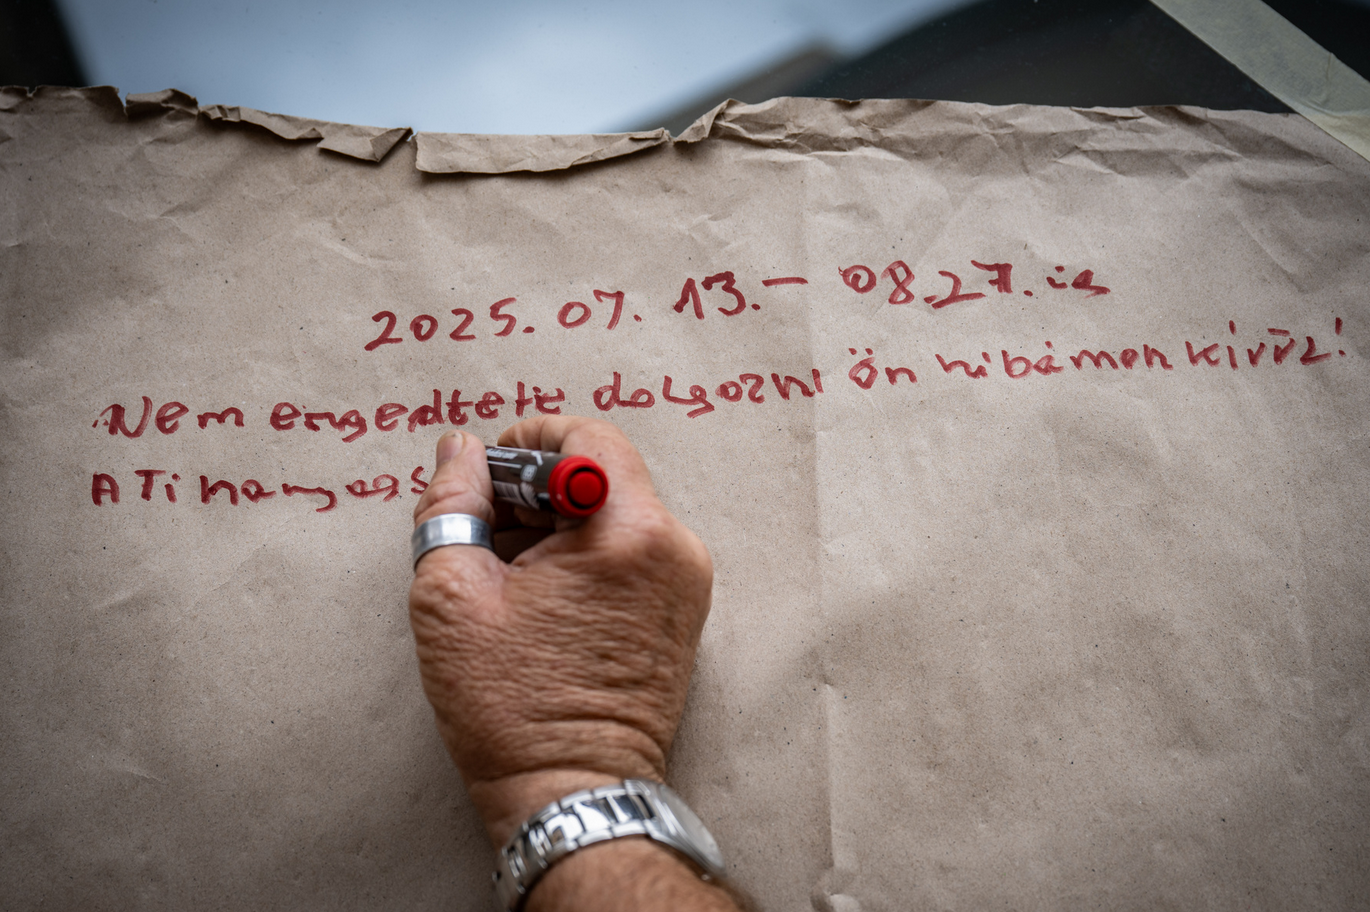 2025.07.13.- 08.27.ig
Nem engedtetek dolgozni ön hibámon kívűl!
A Ti hanyags